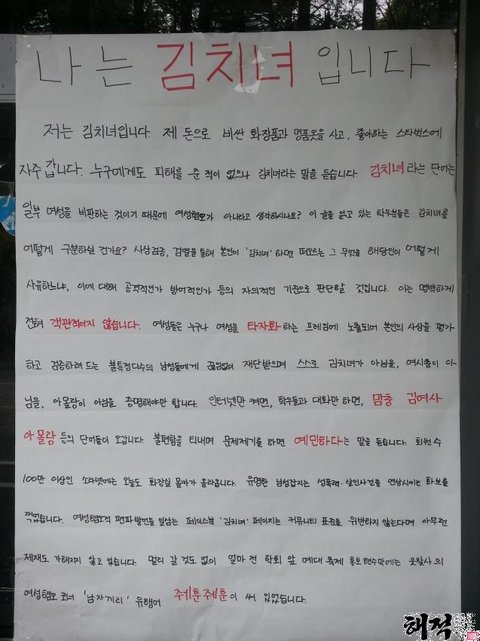 나는 김치녀 입니다
저는 김치녀입니다 제 돈으로 비싼 화장품과 명품옷을 사고, 좋아하는 스타벅스에
자주 갑니다. 누구에게도 피해를 준 적이 없으나 김치녀라는 말을 듣습니다 김치녀라는 단어는
일부 여성을 비판하는 것이기 때문에 여성혐오가 아니라고 생각하시나요? 이 글을 읽고 있는 학우분들은 김치녀를
어떻게 구분하실 건가요? 사상검증, 검열을 통해 본인이 '김치녀' 하면 떠오르는 그 무언가를 해당인이 어떻게
사유하느냐, 이에 대해 공격적인가 방어적인가 등의 자의적인 기준으로 판단할 것입니다. 이는 명백하게
전혀 객관적이지 않습니다. 여성들은 누구나 여성을 타자화하는 프레임에 노출되어 본인의 사상을 평가
하고 검증하려 드는 불특정다수의 남성들에게 끊임없이 재단받으며 스스로 김치녀가 아님을, 여시충이 아
님을, 아몰랑이 아님을 증명해야만 합니다. 인터넷만 켜면, 학우들과 대화만 하면, 맘충 김여사
아몰랑 등의 단어들이 오갑니다. 불편함을 티내며 문제제기를 하면 예민하다는 말을 듣습니다. 회원 수
100만 이상인 소라넷에는 오늘도 화장실 몰카가 올라옵니다. 유명한 남성잡지는 성폭력·살인사건을 연상시키는 화보를
찍었습니다. 여성혐오적 발언을 일삼는 페이스북 '김치녀' 페이지는 커뮤니티 표준을 위반하지 않는다며 아무런
제재도 가해지지 않고 있습니다. 멀리 갈 것도 없이 얼마 전 학회 앞 예대 축제 홍보 현수막에는 웃찾사의
여성혐오 코너 '남자끼리' 유행어 주예훈주예훈이 써 있었습니다.
해적